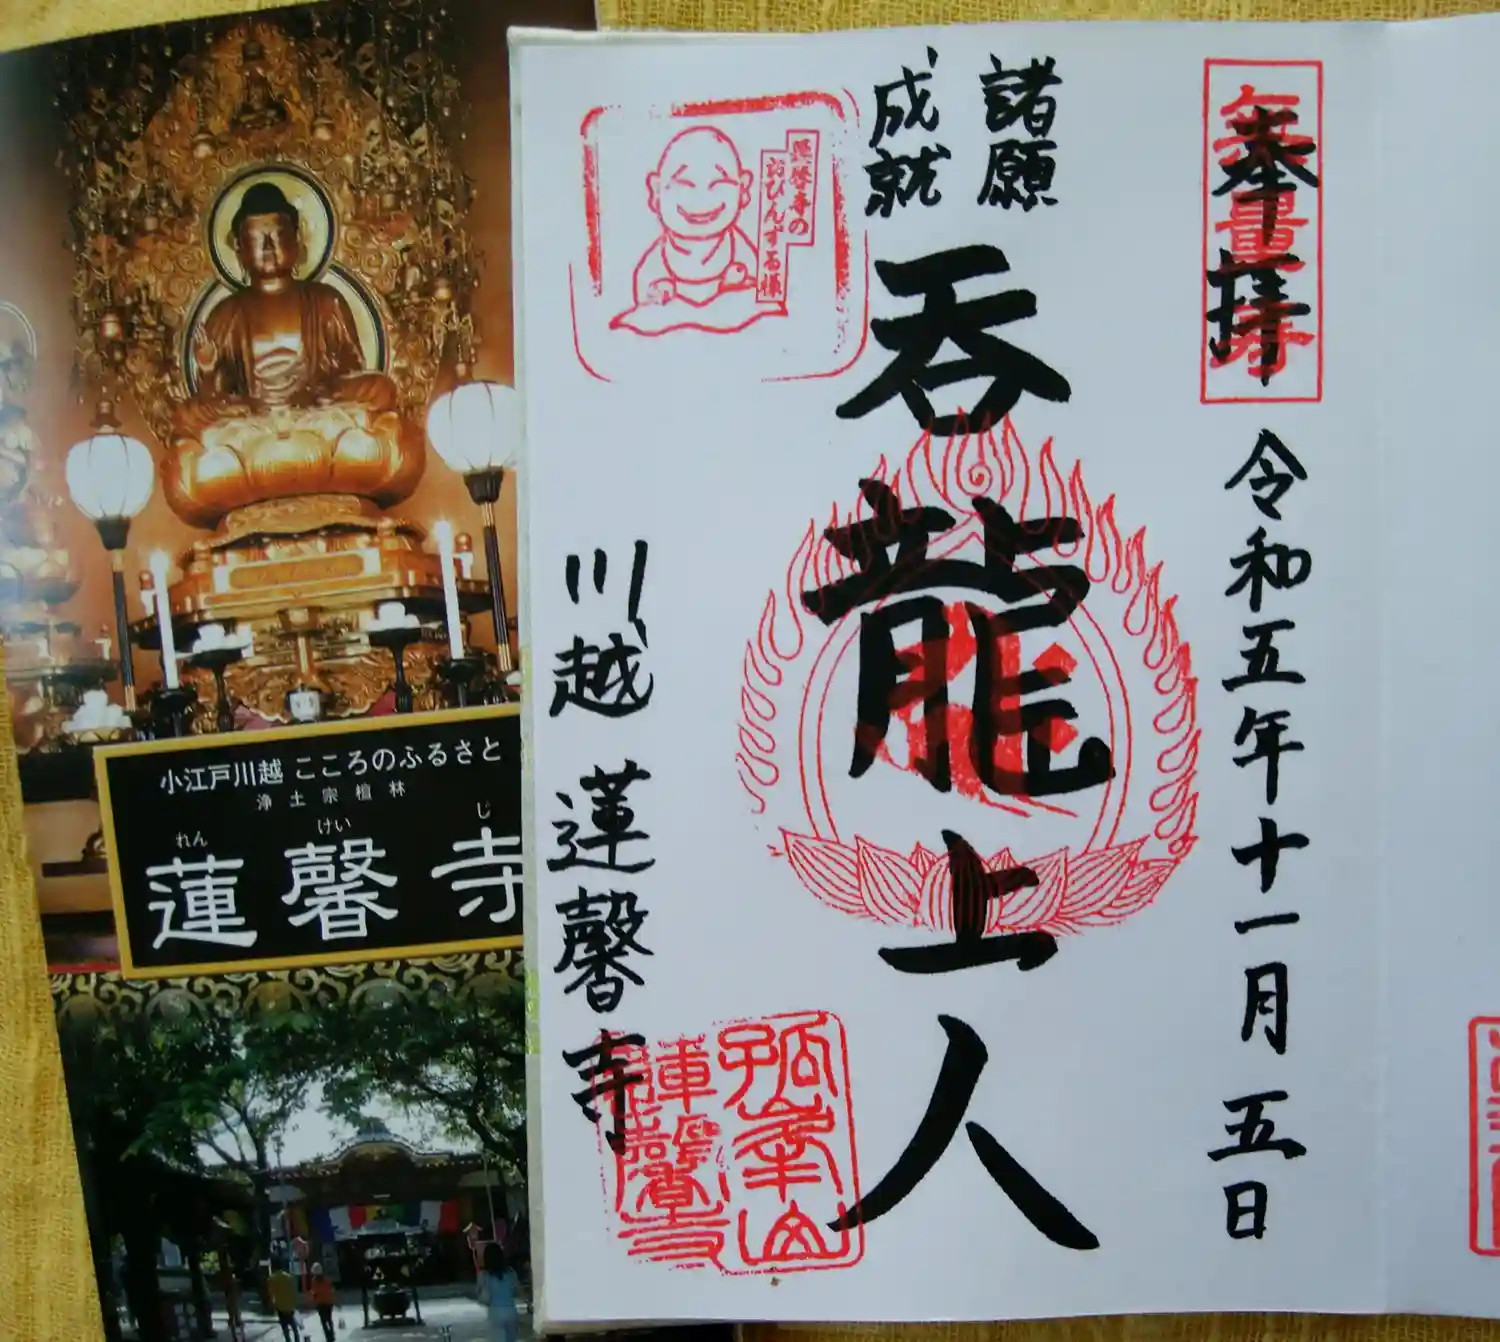 奉拝
無量寿
令和五年十一月五日
諸願
成就
呑龍上人
蓮馨寺の
おびんずる様
川越 蓮馨寺
孤峯山
蓮馨寺
小江戸川越 こころのふるさと
浄土宗檀林
れん けい じ
蓮馨寺